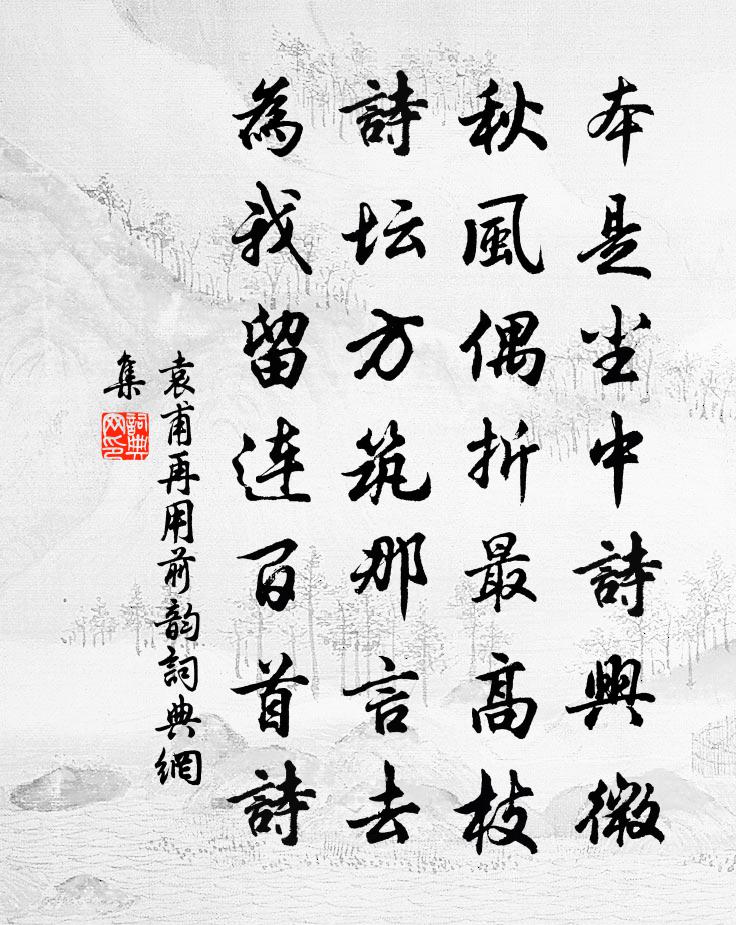 本是尘中詩興微
秋風偶折最高枝
詩坛方筑那言去
為我留连百首詩
袁甫再用前韵詞典網
集
詞典
网印